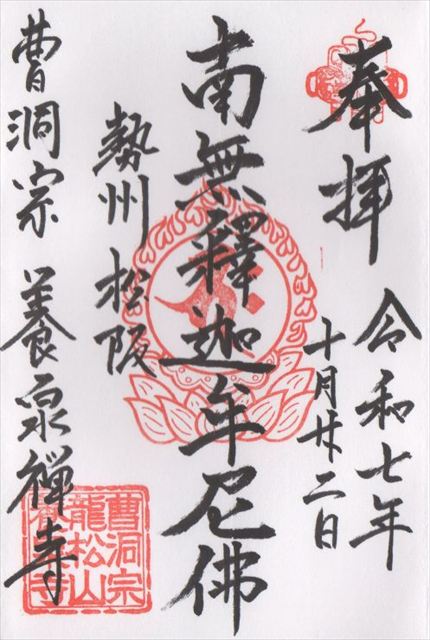 奉拝
令和七年
十月廿二日
南無釋迦牟尼佛
勢州松阪
曹洞宗 養泉禅寺
曹洞宗
龍松山
養泉寺